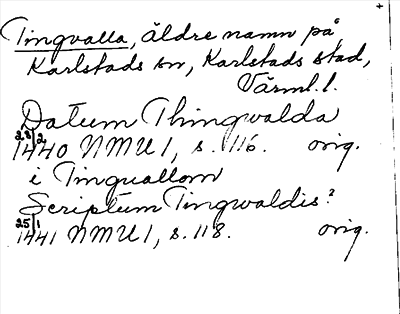 Tingvalla, äldre namn på
Karlstads sn, Karlstads stad,
Värml. l.
Datum Thingwalda
23/2 1440 NMU 1, s. 116. orig.
i Tinguallom
Scriptum Tingwaldis?
25/1 1441 NMU 1, s. 118. orig.